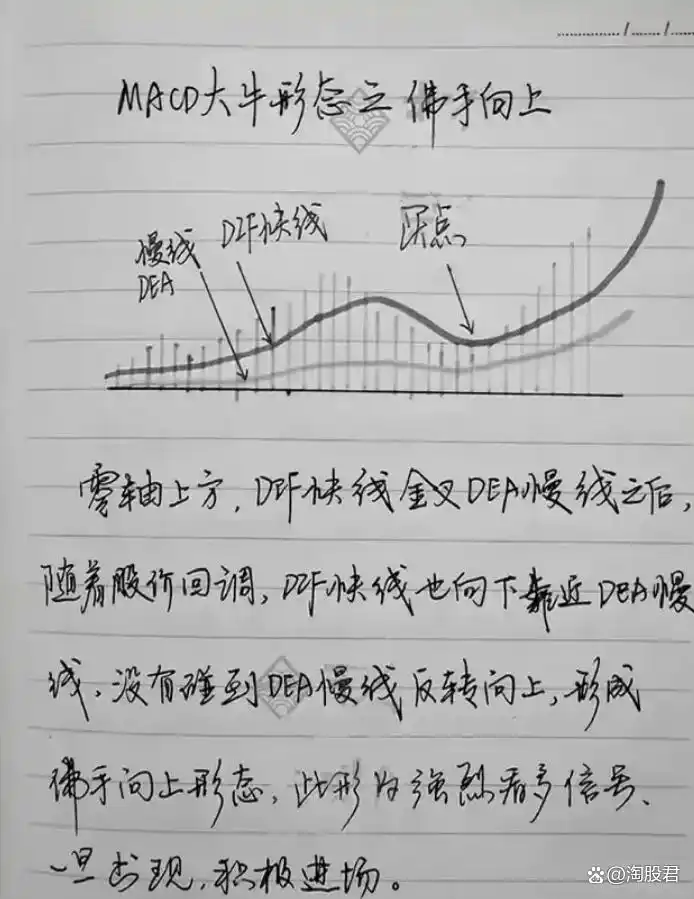 MACD大牛形态之佛手向上
慢线
DEA
DIF快线
买点
零轴上方,DIF快线金叉DEA慢线之后,
随着股价回调,DIF快线也向下靠近DEA慢
线,没有碰到DEA慢线反转向上,形成
佛手向上形态,此形为强烈看多信号、
一旦出现,积极进场。
@淘股君